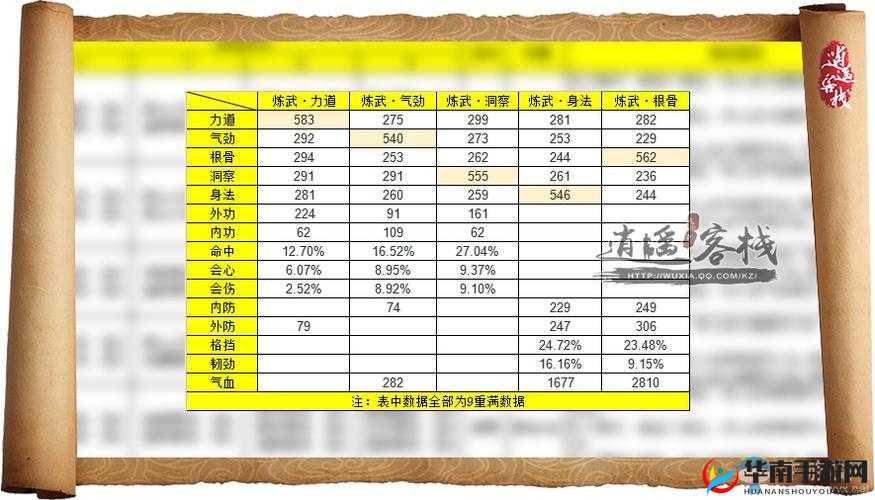 逍遥客栈
炼武·力道 炼武·气劲 炼武·洞察 炼武·身法 炼武·根骨
力道 583 275 299 281 282
气劲 292 540 273 253 229
根骨 294 253 262 244 562
洞察 291 291 555 261 236
身法 281 260 259 546 244
外功 224 91 161
内功 62 109 62
命中 12.70% 16.52% 27.04%
会心 6.07% 8.95% 9.37%
会伤 2.52% 8.92% 9.10%
内防 74 229 249
外防 79 247 306
格挡 24.72% 23.48%
韧劲 16.16% 9.15%
气血 282 1677 2810
注：表中数据全部为9重满数据
逍遥客栈
HTTP://WUXIA.QQ.COM/KZ/
华南手游网
HUANANSHOUYOUW